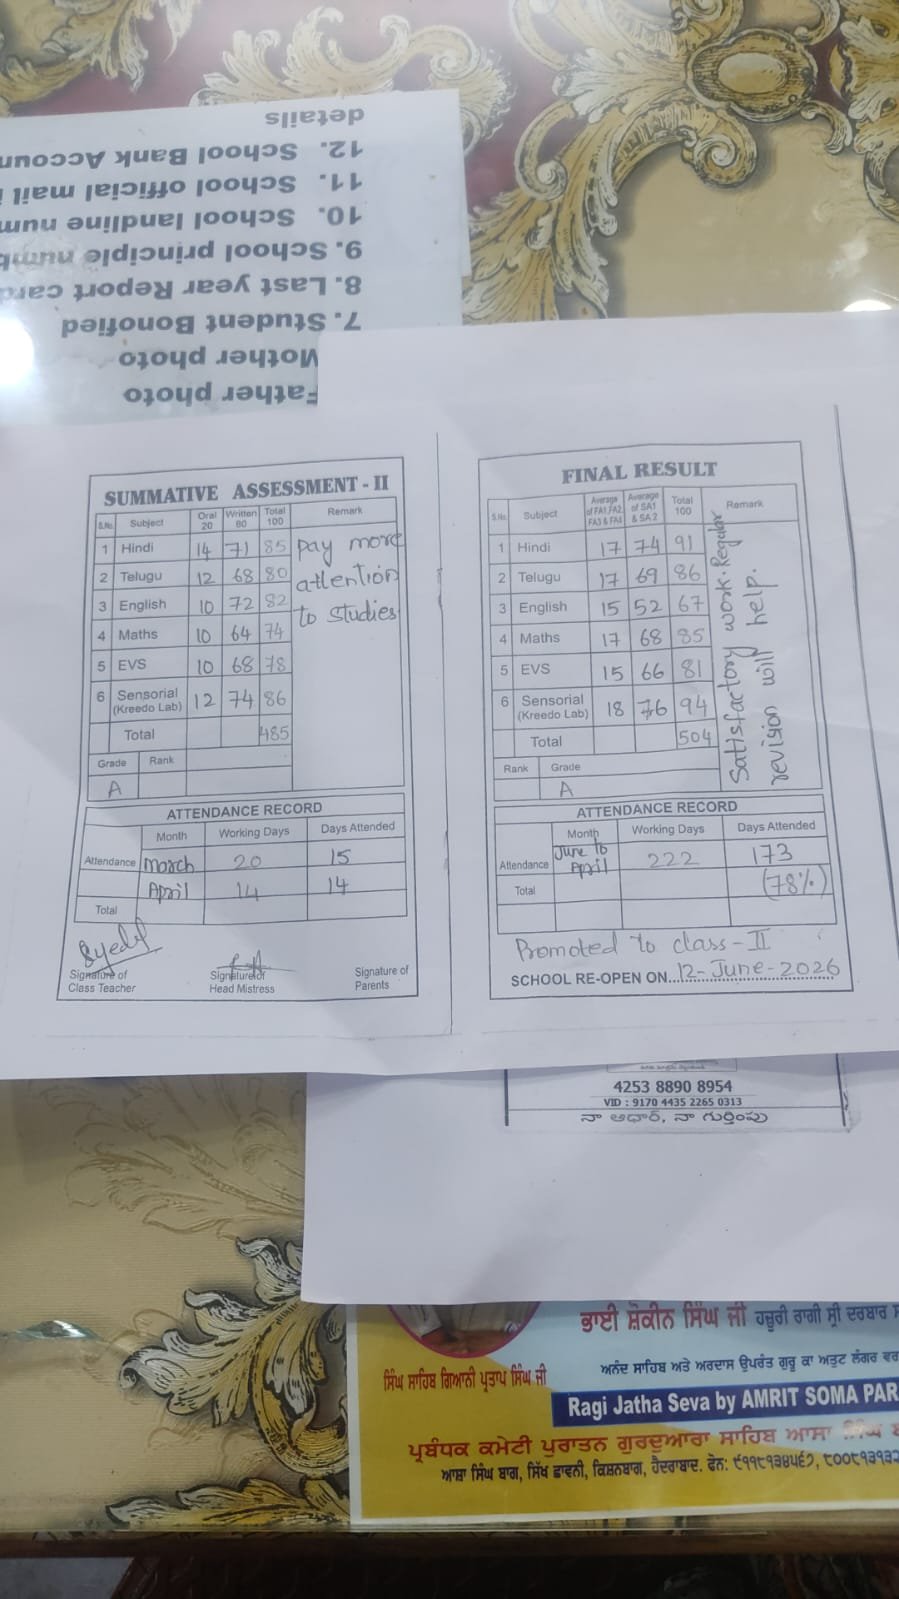 details
12. School Bank Accoun
11. School official mail i
10. School landline num
9. School principle numb
8. Last year Report card
7. Student Bonofied
Mother photo
Father photo
SUMMATIVE ASSESSMENT - II
S.No. Subject Oral 20 Written 80 Total 100 Remark
1 Hindi 14 71 85 pay more
2 Telugu 12 68 80 attention
3 English 10 72 82 to studies
4 Maths 10 64 74
5 EVS 10 68 78
6 Sensorial (Kreedo Lab) 12 74 86
Total 485
Grade Rank
A
ATTENDANCE RECORD
Month Working Days Days Attended
Attendance March 20 15
April 14 14
Total
Signature of Class Teacher
Signature of Head Mistress
Signature of Parents
FINAL RESULT
S.No. Subject Average of FA1, FA2, FA3 & FA4 Average of SA1 & SA2 Total 100 Remark
1 Hindi 17 74 91
2 Telugu 17 69 86
3 English 15 52 67
4 Maths 17 68 85
5 EVS 15 66 81
6 Sensorial (Kreedo Lab) 18 76 94
Total 504
Satisfactory work. Regular
revision will help.
Rank Grade
A
ATTENDANCE RECORD
Month Working Days Days Attended
Attendance June to April 222 173
Total (78%)
Promoted to class - II
SCHOOL RE-OPEN ON 12-June-2026
4253 8890 8954
VID : 9170 4435 2265 0313
నా ఆధార్, నా గుర్తింపు
ਭਾਈ ਸ਼ੌਕੀਨ ਸਿੰਘ ਜੀ ਹਜ਼ੂਰੀ ਰਾਗੀ ਸ੍ਰੀ ਦਰਬਾਰ
ਸਿੰਘ ਸਾਹਿਬ ਗਿਆਨੀ ਪ੍ਰਤਾਪ ਸਿੰਘ ਜੀ
ਅਨੰਦ ਸਾਹਿਬ ਅਤੇ ਅਰਦਾਸ ਉਪਰੰਤ ਗੁਰੂ ਕਾ ਅਤੁਟ ਲੰਗਰ ਵਰ
Ragi Jatha Seva by AMRIT SOMA PAR
ਪ੍ਰਬੰਧਕ ਕਮੇਟੀ ਪੁਰਾਤਨ ਗੁਰਦੁਆਰਾ ਸਾਹਿਬ ਆਸਾ ਸਿੰਘ ਬ
ਆਸ਼ਾ ਸਿੰਘ ਬਾਗ, ਸਿੱਖ ਛਾਵਨੀ, ਕਿਸ਼ਨਬਾਗ, ਹੈਦਰਾਬਾਦ. ਫੋਨ: ੯੧੧੮੧੩੪੫੬੭, ੮੦੦੮੧੩੧੩੨